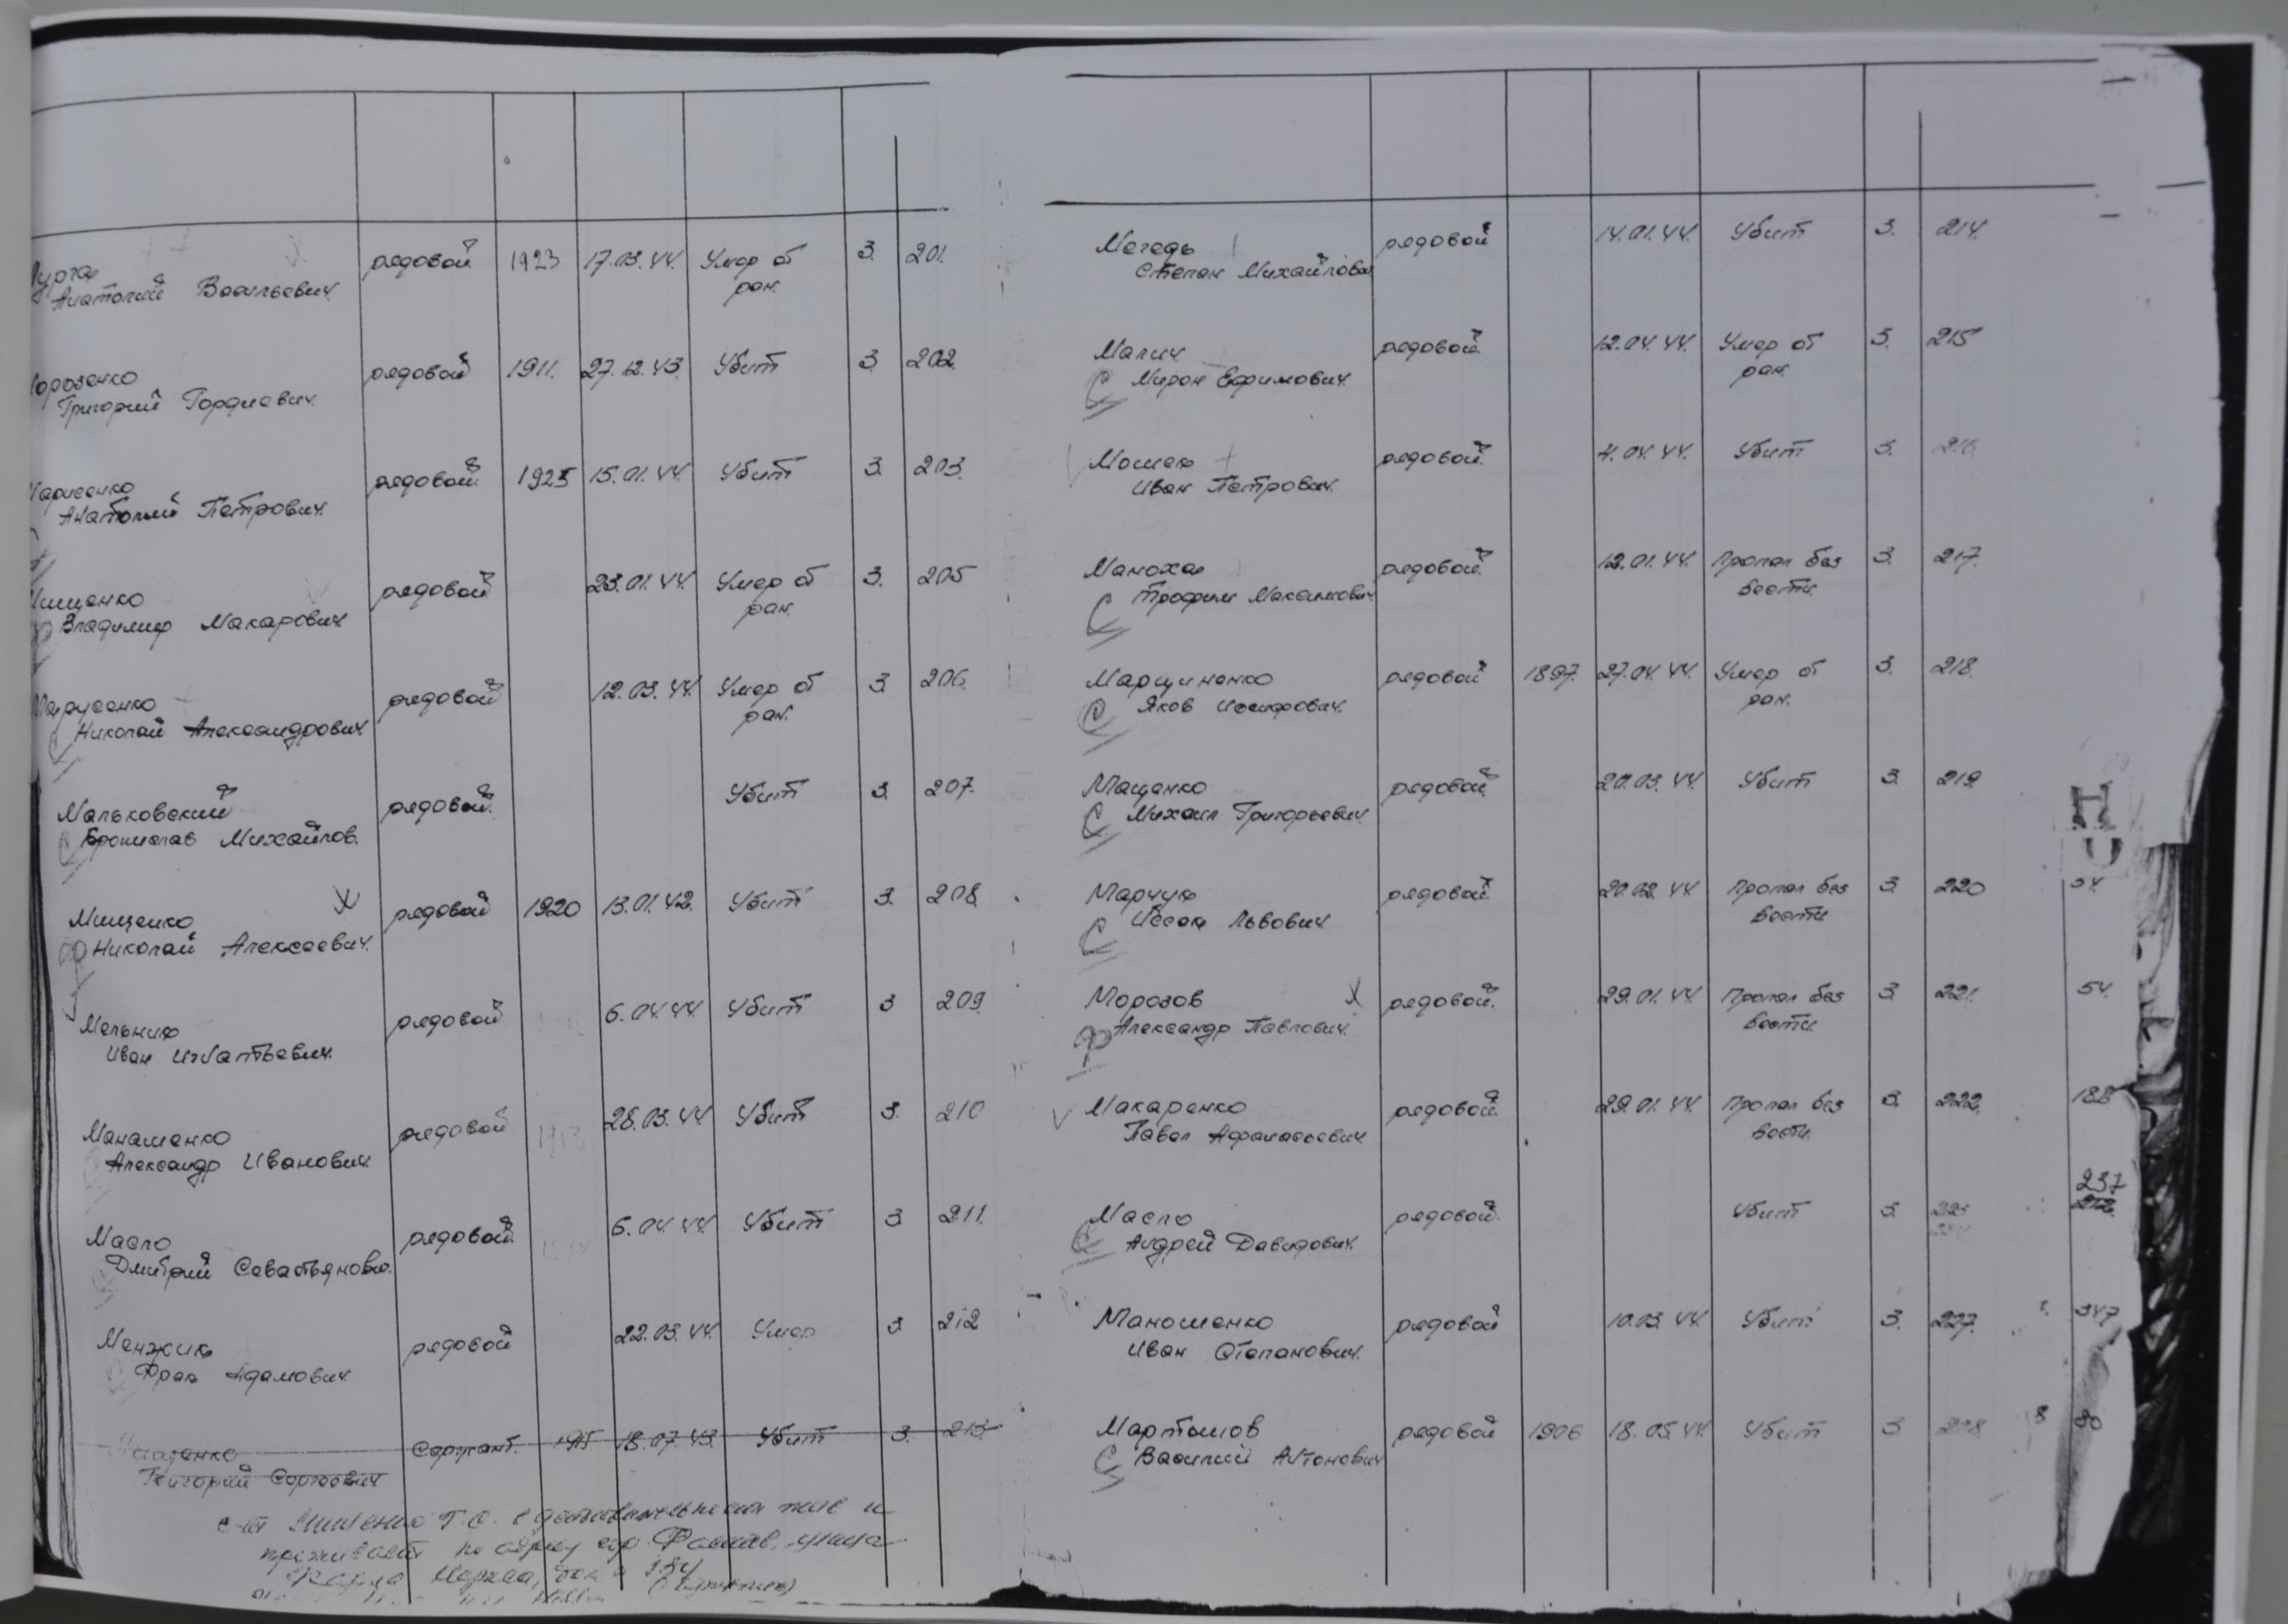 Анатолий Васильевич. рядовой 1923 17.03.44. Умер от ран. 3. 201.
Григорий Гордиевич. рядовой 1911. 27.12.43. Убит 3. 202.
Анатолий Петрович. рядовой 1925 15.01.44. Убит 3. 203.
Владимир Макарович рядовой 23.01.44. Умер от ран. 3. 205
Марусенко
Николай Александрович. рядовой 12.03.44. Умер от ран. 3. 206.
Мальковский
Бронислав Михайлов. рядовой. Убит 3. 207.
Мищенко
Николай Алексеевич. рядовой 1920 13.01.42. Убит 3. 208.
Мельник
Иван Игнатьевич. рядовой 6.04.44. Убит 3 209.
Манашенко
Александр Иванович. рядовой 1913 28.03.44 Убит 3. 210
Масло
Дмитрий Севастьянович. рядовой. 6.04.44. Убит 3. 211.
Менжик
Франц Адамович. рядовой 22.03.44. Умер 3. 212
Григорий Сергеевич Сержант. 1915 18.07.43. Убит 3. 213.
проживает по адресу гор. Фастов, улица
Карла Маркса,
Мегедь
Степан Михайлович рядовой 14.01.44. Убит 3. 214.
Малич
Мирон Ефимович. рядовой. 12.04.44. Умер от ран. 3. 215
Мошек
Иван Петрович. рядовой. 4.04.44. Убит 3. 216.
Маноха
Трофим Максимович рядовой. 12.01.44. Пропал без вести. 3. 217.
Марциненко
Яков Иосифович. рядовой 1897. 27.04.44. Умер от ран. 3. 218.
Мащенко
Михаил Григорьевич. рядовой. 20.03.44. Убит 3. 219
Марчук
Исаак Львович. рядовой. 20.02.44 Пропал без вести 3. 220
Морозов
Александр Павлович. рядовой. 29.01.44 Пропал без вести. 3. 221. 54.
Макаренко
Павел Афанасьевич. рядовой. 29.01.44. Пропал без вести. 3. 222. 188
Масло
Андрей Давидович. рядовой. Убит 3. 237
Маношенко
Иван Степанович. рядовой 10.03.44. Убит 3. 227. 347
Мартынов
Василий Антонович рядовой 1906 18.05.44 Убит 3 228 80